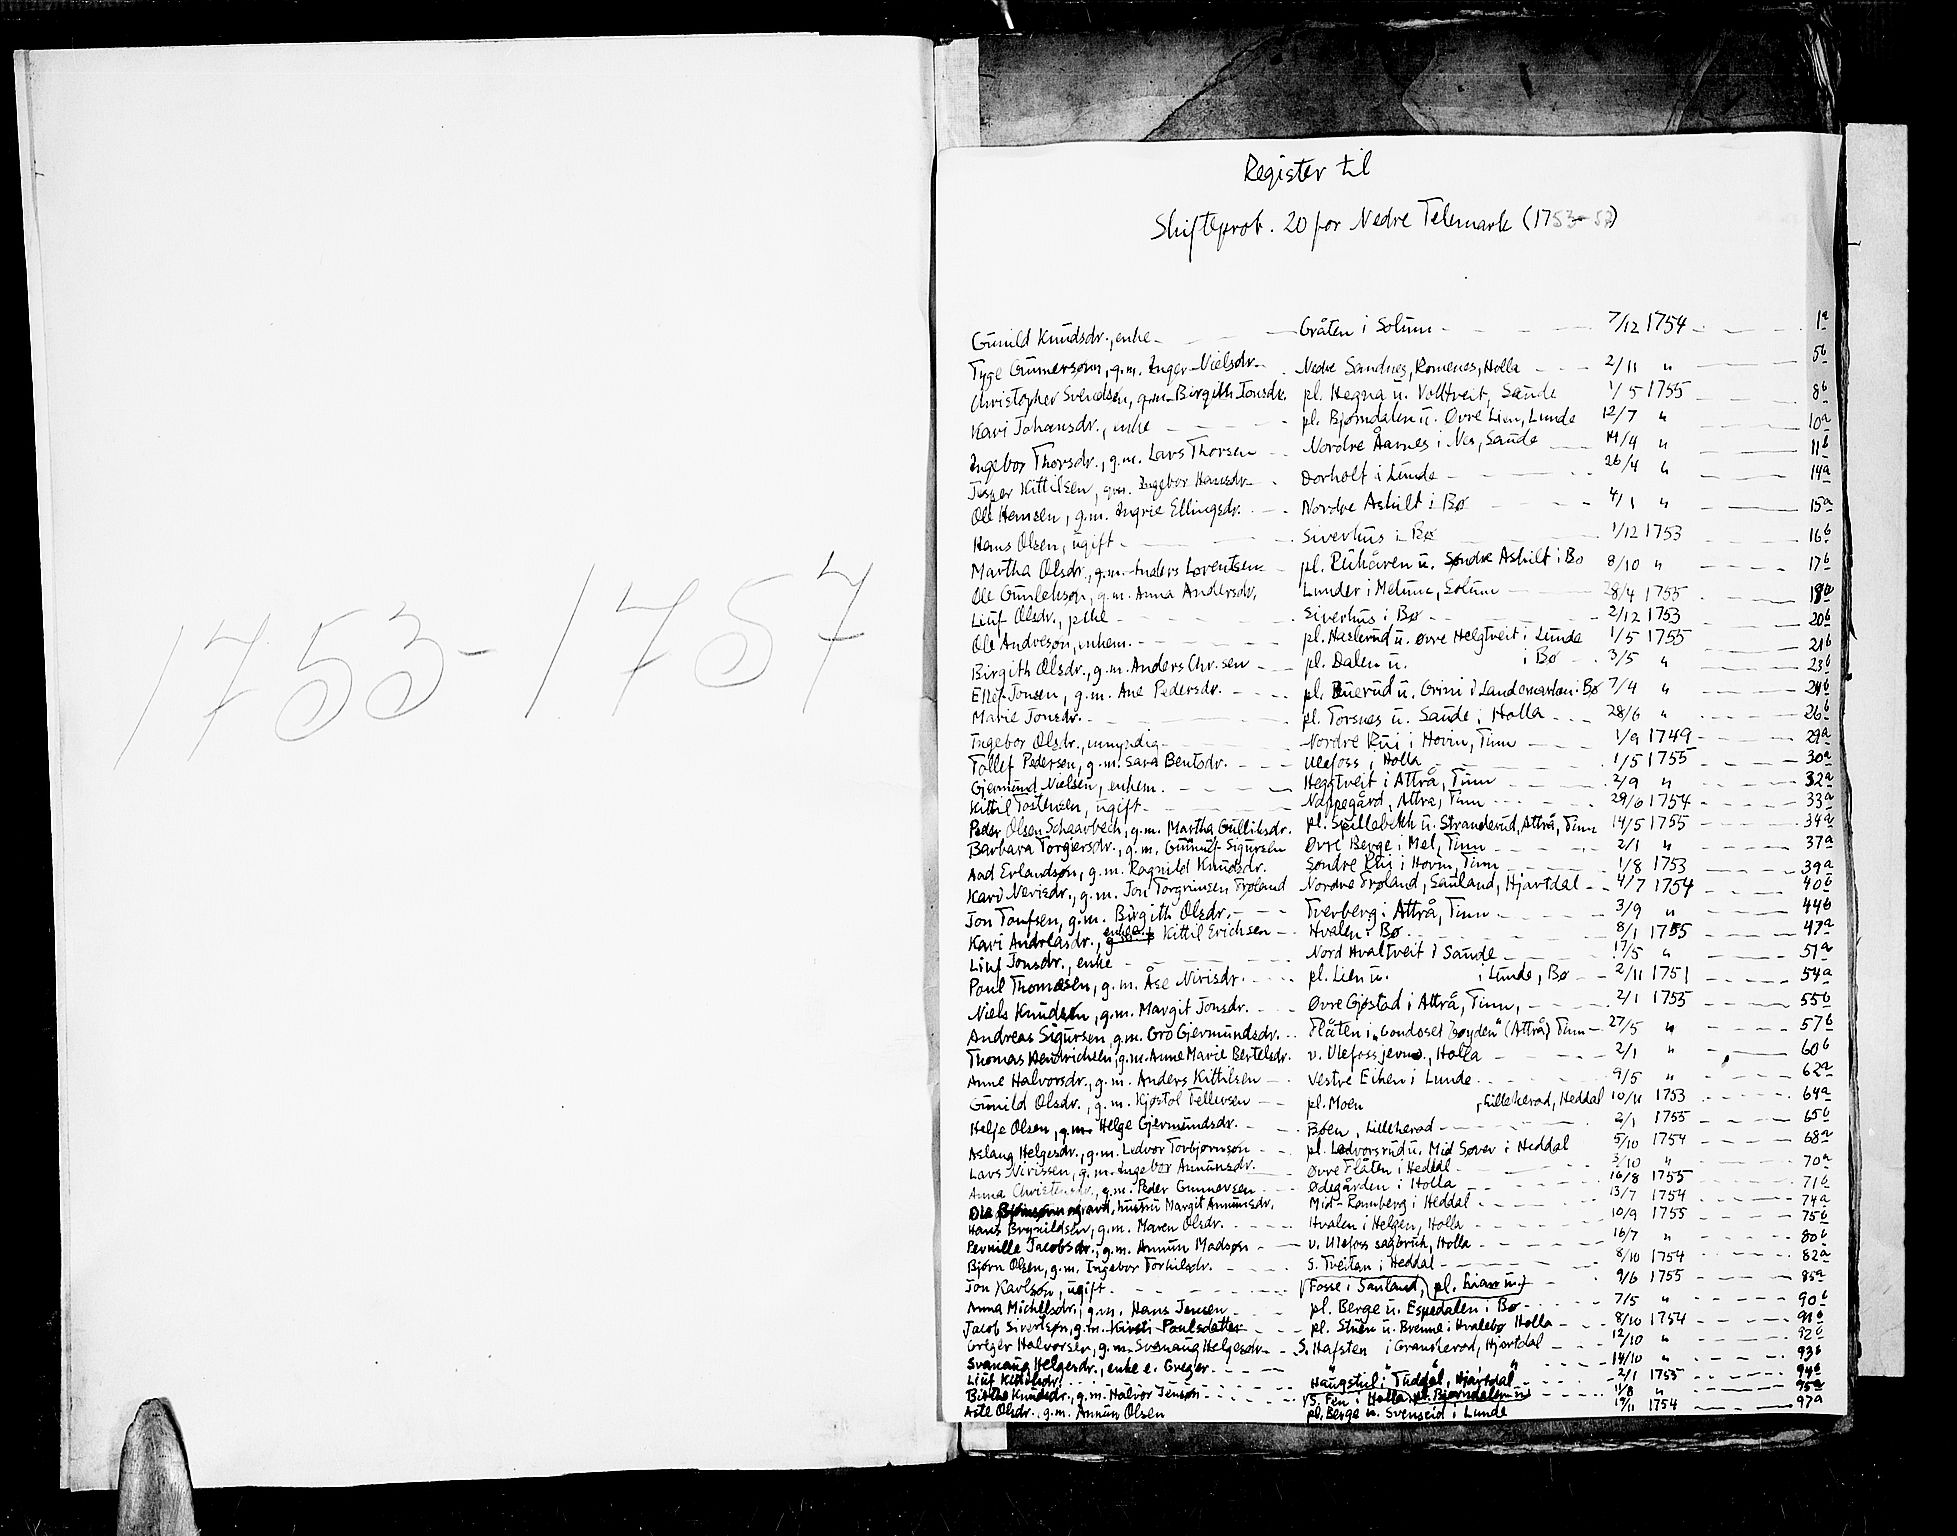 1753-1757
Register til
Skifteprot. 20 for Nedre Telemark (1753-57)
Gunild Knudsdr., enke - Gråten i Solum - 7/12 1754 - 1a
Tyge Gunnersøn, g.m. Inger Nielsdr. - Nedre Sandnes, Romenes, Holla - 2/11 " - 5b
Christopher Svendsen, g.m. Birgith Jonsdr. pl. Hegna u. Volltveit, Saude 1/5 1755 - 8b
Kari Johansdr., enke - pl. Bjørndalen u. Øvre Lien, Lunde 12/7 " - 10a
Ingebor Thorsdr., g.m. Lars Thorsen - Nordre Åarnes i Nes, Saude - 14/4 " - 11b
Jesper Kittilsen, g.m. Ingebor Hansdr. - Dorholt i Lunde - 26/4 " - 14a
Ole Hansen, g.m. Ingrie Ellingsdr. - Nordre Askilt i Bø - 4/1 " - 15a
Hans Olsen, ugift - Siverhus i Bø - 1/12 1753 - 16b
Martha Olsdr., g.m. Anders Lorentsen - pl. Ruhåven u. Søndre Askilt i Bø 8/10 " - 17b
Ole Gunleksøn, g.m. Anna Andersdr. Lunder i Melum, Solum - 28/4 1755 - 18a
Liuf Olsdr., pike - Siverhus i Bø - 2/12 1753 - 20b
Ole Andresøn, enkem. - pl. Haslerud u. øvre Helgtveit i Lunde 1/5 1755 - 21b
Birgith Olsdr., g.m. Anders Chr.sen - pl. Dalen u. i Bø - 3/5 " - 23b
Ellef Jonsen, g.m. Ane Pedersdr. - pl. Buerud u. Grini i Landsmarken i Bø 7/4 " - 24b
Marie Jonsdr. - pl. Torsnes u. Saude i Holla - 28/6 " - 26b
Ingebor Olsdr., umyndig - Nordre Rui i Hovin, Tinn - 1/9 1749 - 29a
Tollef Pedersen, g.m. Sara Bentsdr. - Ulefoss i Holla - 1/5 1755 - 30a
Gjermund Nielsen, enkem. - Heggtveit i Attrå, Tinn - 2/9 " - 32a
Kittil Tostensen, ugift - Noppegård, Attrå, Tinn - 29/6 1754 - 33a
Peder Olsen Schaarbech, g.m. Martha Gulliksdr. pl. Spillebekk u. Stranderud, Attrå, Tinn 14/5 1755 - 34a
Barbara Torgiersdr., g.m. Gunnuf Sigursen Øvre Berge i Mel, Tinn - 2/1 " - 37a
Aad Erlandsøn, g.m. Ragnild Knudsdr. Søndre Rui i Hovin, Tinn - 1/8 1753 - 39a
Kari Nerisdr., g.m. Jon Torgrimsen Frøland Nordre Frøland, Sauland, Hjartdal - 4/7 1754 - 40b
Jon Toufsen, g.m. Birgith Olsdr. - Tverberg i Attrå, Tinn - 3/9 " - 44b
Kari Andreasdr., enke e. Kittil Erichsen - Hvalen i Bø - 8/1 1755 - 47a
Liuf Jonsdr., enke - Nord Hvaltveit i Saude - 17/5 " - 51a
Paul Thomæsen, g.m. Åse Nirisdr. - pl. Lien u. i Lunde, Bø - 2/11 1751 - 54a
Niels Knudsen, g.m. Margit Jonsdr. - Øvre Gjøstad i Attrå, Tinn, - 2/1 1755 - 55b
Andreas Sigursen, g.m. Gro Gjermundsdr. - Flåten i „Gondoset bøyden" (Attrå) Tinn - 27/5 " - 57b
Thomas Hendrichsen, g.m. Anne Marie Bertelsdr. v. Ulefoss jernv., Holla - 2/1 " - 60b
Anne Halvorsdr., g.m. Anders Kittilsen - Vestre Eiken i Lunde - 9/5 " - 62a
Gunild Olsdr., g.m. Kjøstol Tellevsen - pl. Moen , Lilleherad, Heddal 10/11 1753 - 64a
Helje Olsen, g.m. Helge Gjermundsdr. - Bøen, Lilleherad - 2/1 1755 - 65b
Aslaug Helgesdr., g.m. Ledvor Torbjørnsøn - pl. Ledvorsrud u. Mid Søver i Heddal 5/10 1754 - 68a
Lars Nirissen, g.m. Ingebor Annunsdr. - Øvre Flåten i Heddal - 3/10 " - 70a
Anna , g.m. Peder Gunnersen - Ødegården i Holla - 16/8 1755 - 71b
Ole hustru Margit Annunsdr. Mid-Ramberg i Heddal - 13/7 1754 - 74a
Hans Brynildsen, g.m. Maren Olsdr. - Hvalen i Helgen, Holla - 10/9 1755 - 75b
Pernille Jacobsdr., g.m. Annun Madsøn - v. Ulefoss sagbruk, Holla - 16/7 " - 80b
Bjørn Olsen, g.m. Ingebor Torkilsdr. - S. Tveitan i Heddal - 8/10 1754 - 82a
Jon Karlsøn, ugift - Fosse i Sauland, - 9/6 1755 - 85a
Anna Michelsdr., g.m. Hans Jensen - pl. Berge u. Espedalen i Bø - 7/5 " - 90b
Jacob Sivertsøn, g.m. Kirsti Paulsdatter - pl. Stuen u. Brenne i Hvalebø Holla - 8/10 1754 - 91b
Greger Halvorsen, g.m. Svanaug Helgesdr. - S. Hafsten i Gransherad, Hjartdal - 12/10 " - 92b
Svanaug Helgesdr., enke e. Greger - " " " - 14/10 " - 93b
Liuf - Haugstul i Tuddal, Hjartdal - 2/1 1755 - 94b
Birthe Knudsdr., g.m. Halvor Jensøn - S. Fen i Holla pl. Bjørndalen u. - 11/8 " - 95a
Aste Olsdr., g.m. Annun Olsen pl. Berge u. Svenseid i Lunde 1754 - 97a